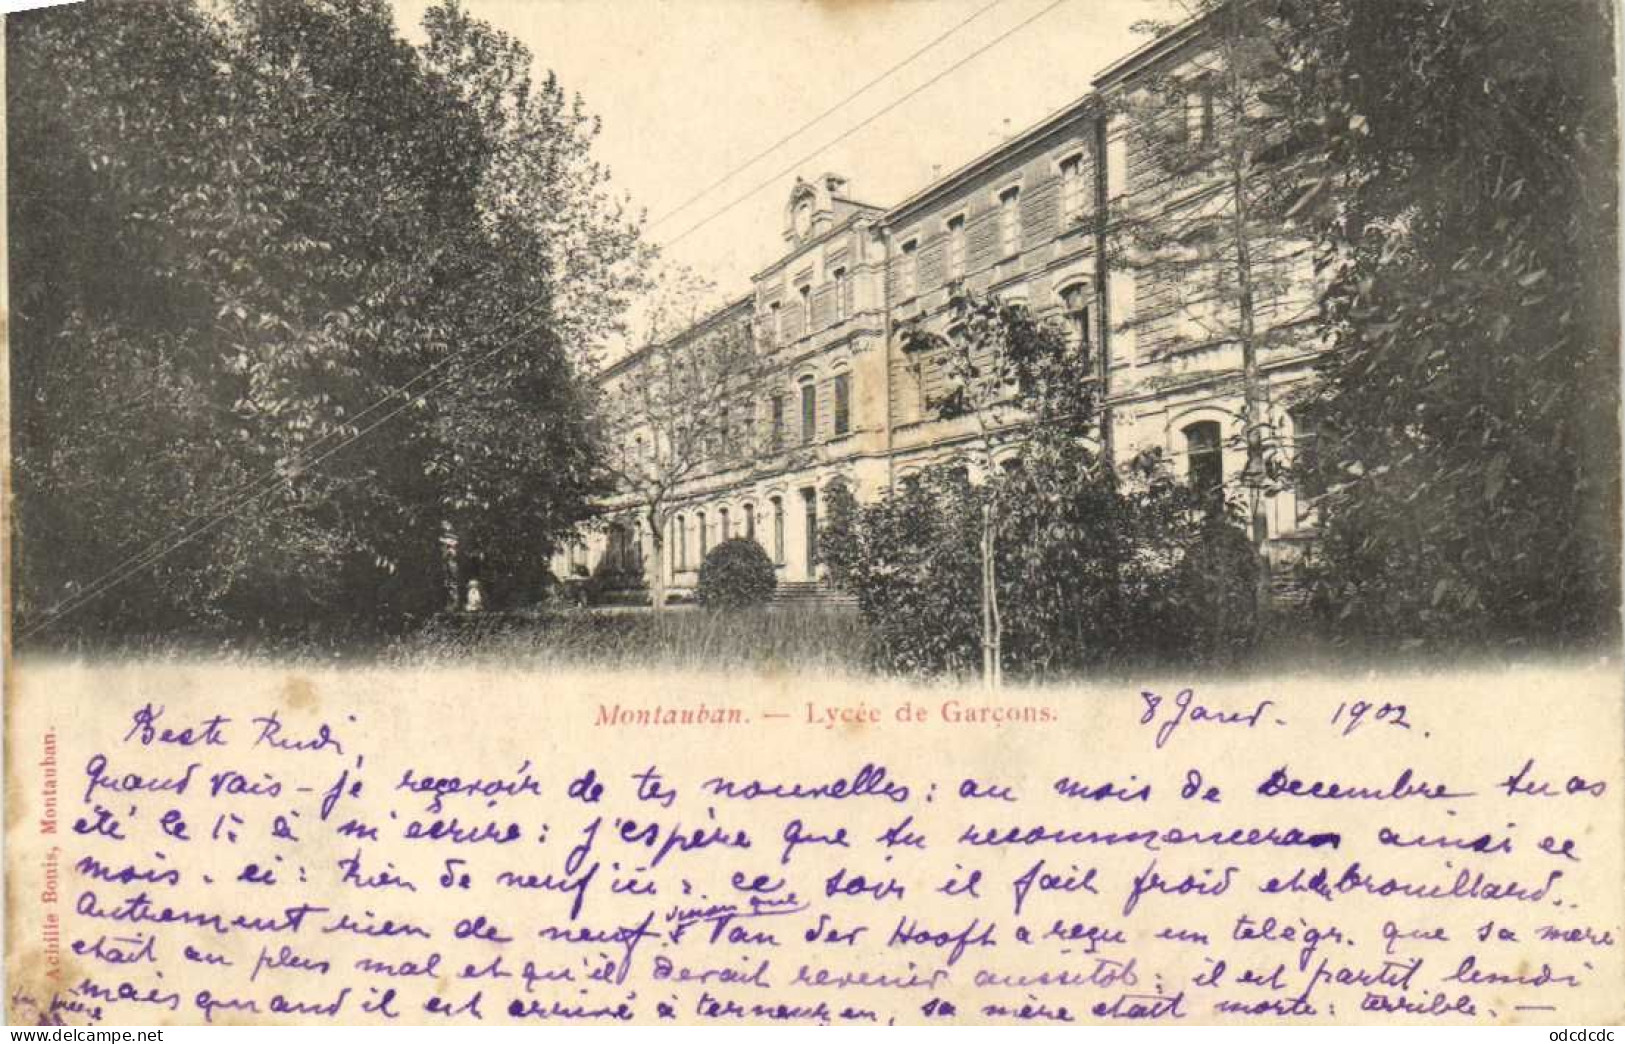 Montauban. — Lycée de Garçons.
8 Janv. 1902.
Achille Bonis, Montauban.
Beste Rudi,
Quand vais-je reçevoir de tes nouvelles : au mois de Decembre tu as
été le 1r à m'écrire : j'espère que tu recommenceras ainsi ce
mois. ci : Rien de neuf ici : ce soir il fait froid et du brouillard..
Autrement rien de neuf sinon que Van der Hooft a reçu un télégr. que sa mère
etait au plus mal et qu'il devait revenir aussitot : il est partit lundi
mais quand il est arrivé à terneuzen, sa mère etait morte : terrible. —
ton frère
odcdcdc